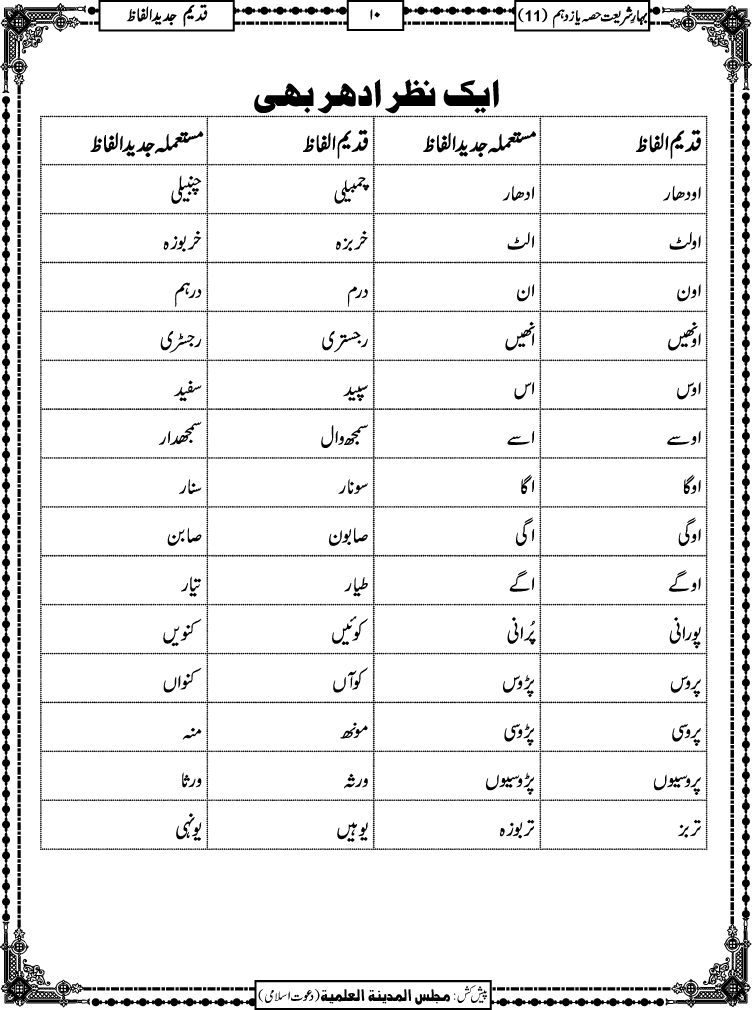 بہارِ شریعت حصہ یازدہم (11) ۱۰ قدیم جدید الفاظ
ایک نظر ادھر بھی
قدیم الفاظ مستعملہ جدید الفاظ قدیم الفاظ مستعملہ جدید الفاظ
اودھار ادھار چمبیلی چنبیلی
اولٹ الٹ خربزہ خربوزہ
اون ان درم درہم
اونھیں انھیں رجستری رجسٹری
اوس اس سپید سفید
اوسے اسے سمجھ وال سمجھدار
اوگا اگا سونار سنار
اوگی اگی صابون صابن
اوگے اگے طیار تیار
پورانی پُرانی کوئیں کنویں
پروس پڑوس کوآں کنواں
پروسی پڑوسی مونھ منہ
پروسیوں پڑوسیوں ورثہ ورثا
تربز تربوزہ یوہیں یونہی
پیش کش: مجلس المدینۃ العلمیۃ (دعوت اسلامی)